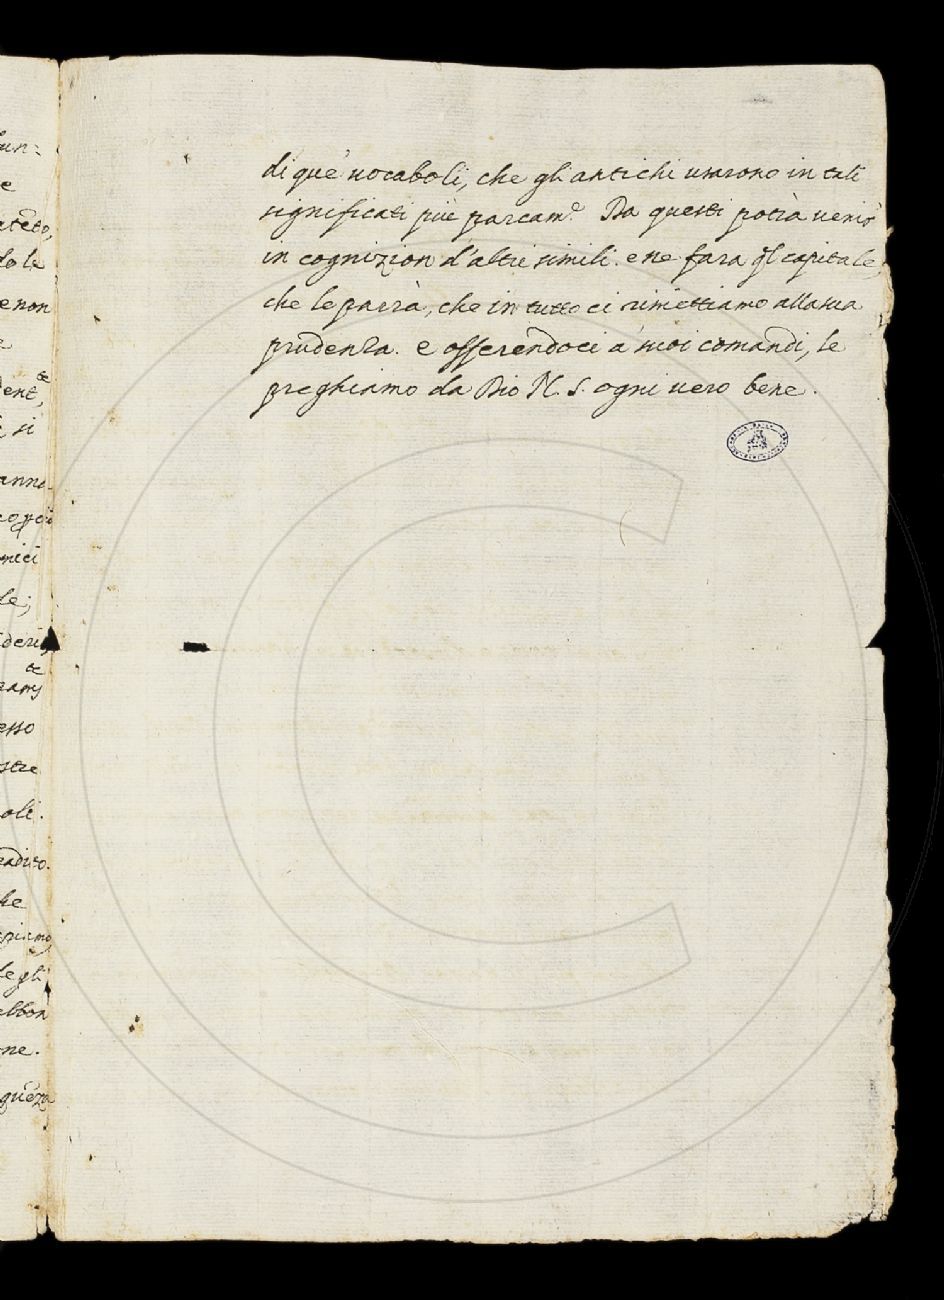 un=
e
do le
e non
e
dent.te,
si
anno
mici
le;
esso
stre
oli.
he
gli
ne.
di que' uocaboli, che gli antichi usarono in tali
significati più parcam.e Da questi potrà uenir
in cognizion d'altri simili. e ne farà ql capitale,
che le parrà, che in tutto ci rimettiamo alla sua
prudenza. e offerendoci a' suoi comandi, le
preghiamo da Dio N. S. ogni uero bene.